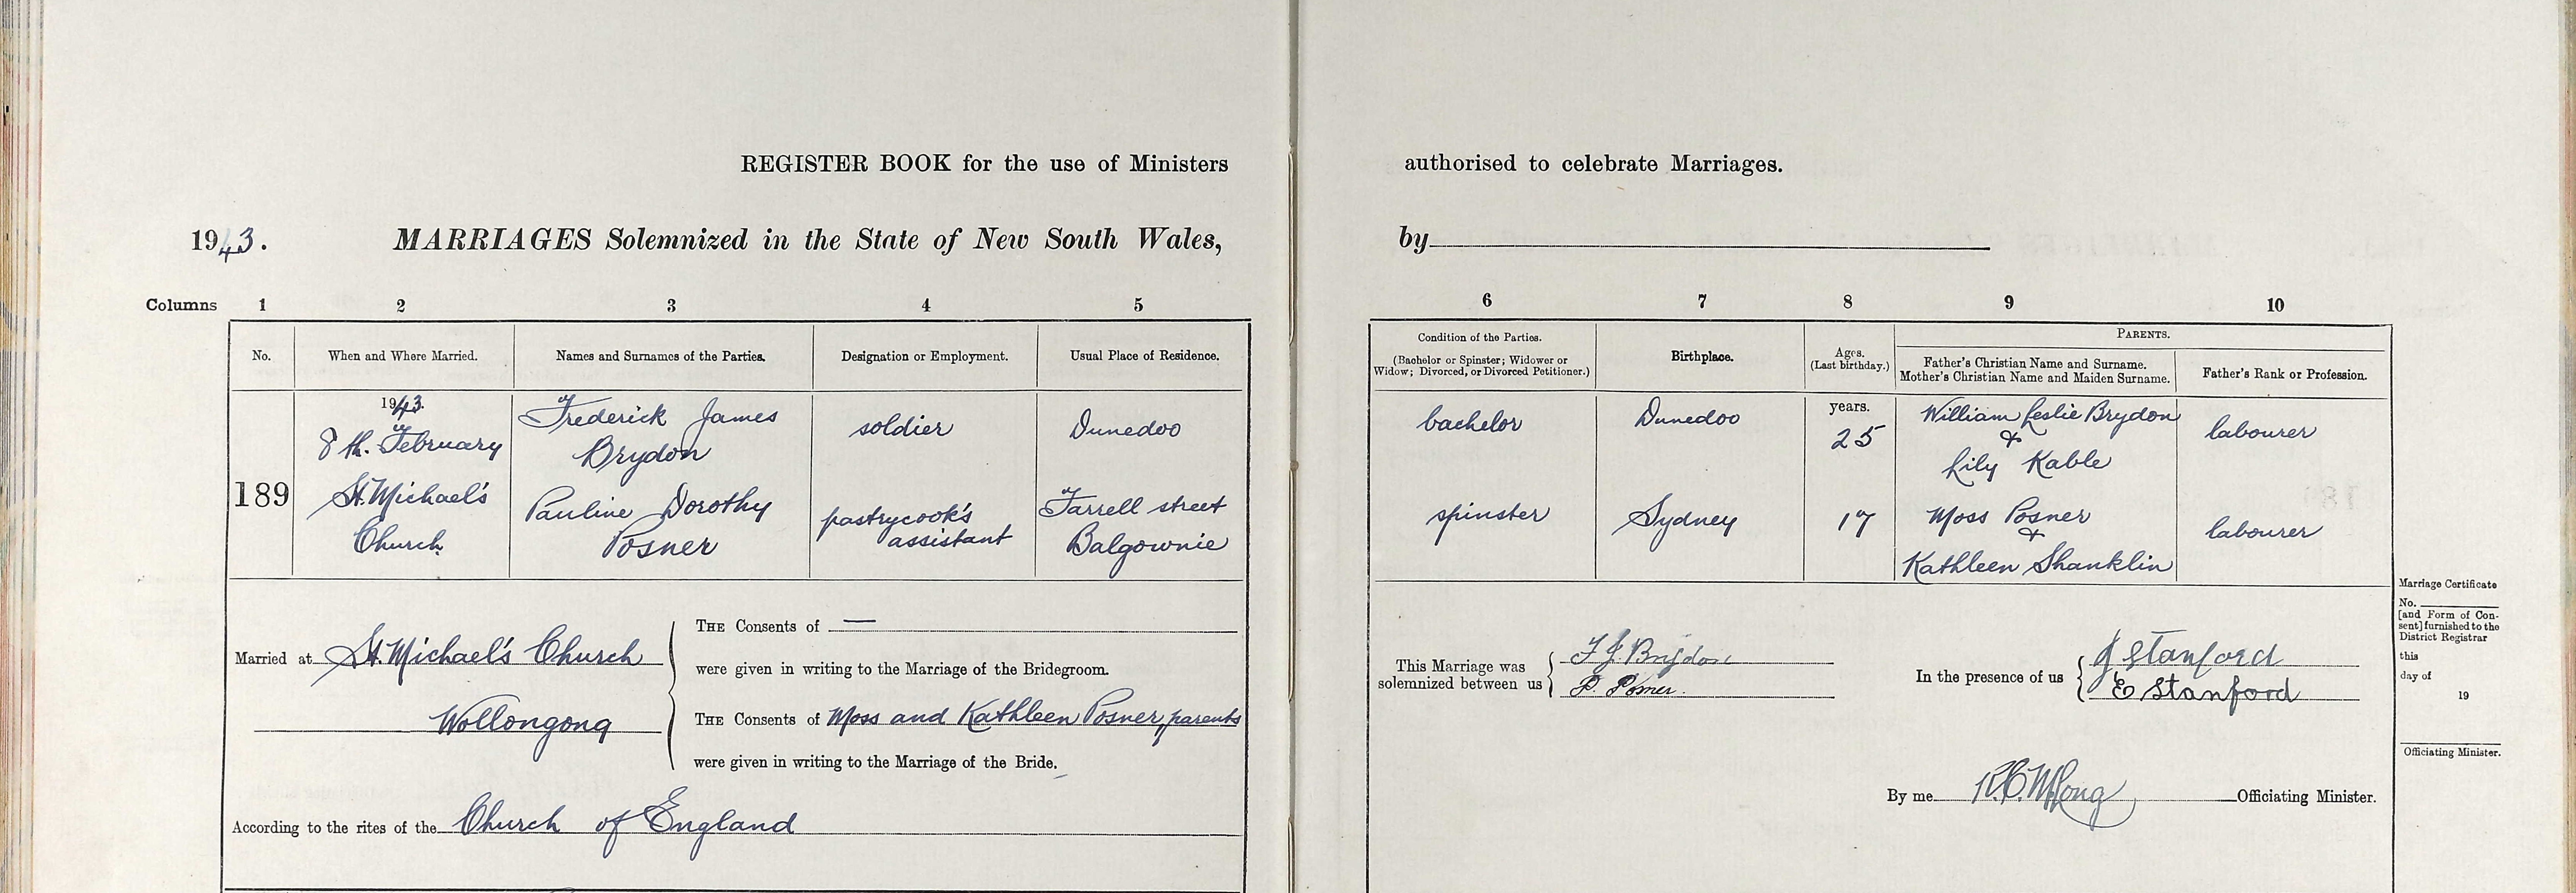 REGISTER BOOK for the use of Ministers authorised to celebrate Marriages.
1943. MARRIAGES Solemnized in the State of New South Wales, by
Columns 1 2 3 4 5 6 7 8 9 10
No.
When and Where Married.
Names and Surnames of the Parties.
Designation or Employment.
Usual Place of Residence.
Condition of the Parties.
(Bachelor or Spinster; Widower or
Widow; Divorced, or Divorced Petitioner.)
Birthplace.
Ages.
(Last birthday.)
PARENTS.
Father's Christian Name and Surname.
Mother's Christian Name and Maiden Surname.
Father's Rank or Profession.
189
1943.
8th. February
St. Michael's
Church
Frederick James
Brydon
soldier
Dunedoo
bachelor
Dunedoo
years.
25
William Leslie Brydon
&
Lily Kable
labourer
Pauline Dorothy
Posner
pastrycook's
assistant
Farrell street
Balgownie
spinster
Sydney
17
Moss Posner
&
Kathleen Shanklin
labourer
Married at St. Michael's Church
Wollongong
THE Consents of —
were given in writing to the Marriage of the Bridegroom.
THE Consents of Moss and Kathleen Posner, parents
were given in writing to the Marriage of the Bride.
According to the rites of the Church of England
This Marriage was
solemnized between us
F. J. Brydon
P. Posner.
In the presence of us
J Stanford
E Stanford
By me Officiating Minister.
Marriage Certificate
No.
[and Form of Con-
sent] furnished to the
District Registrar
this
day of
19
Officiating Minister.